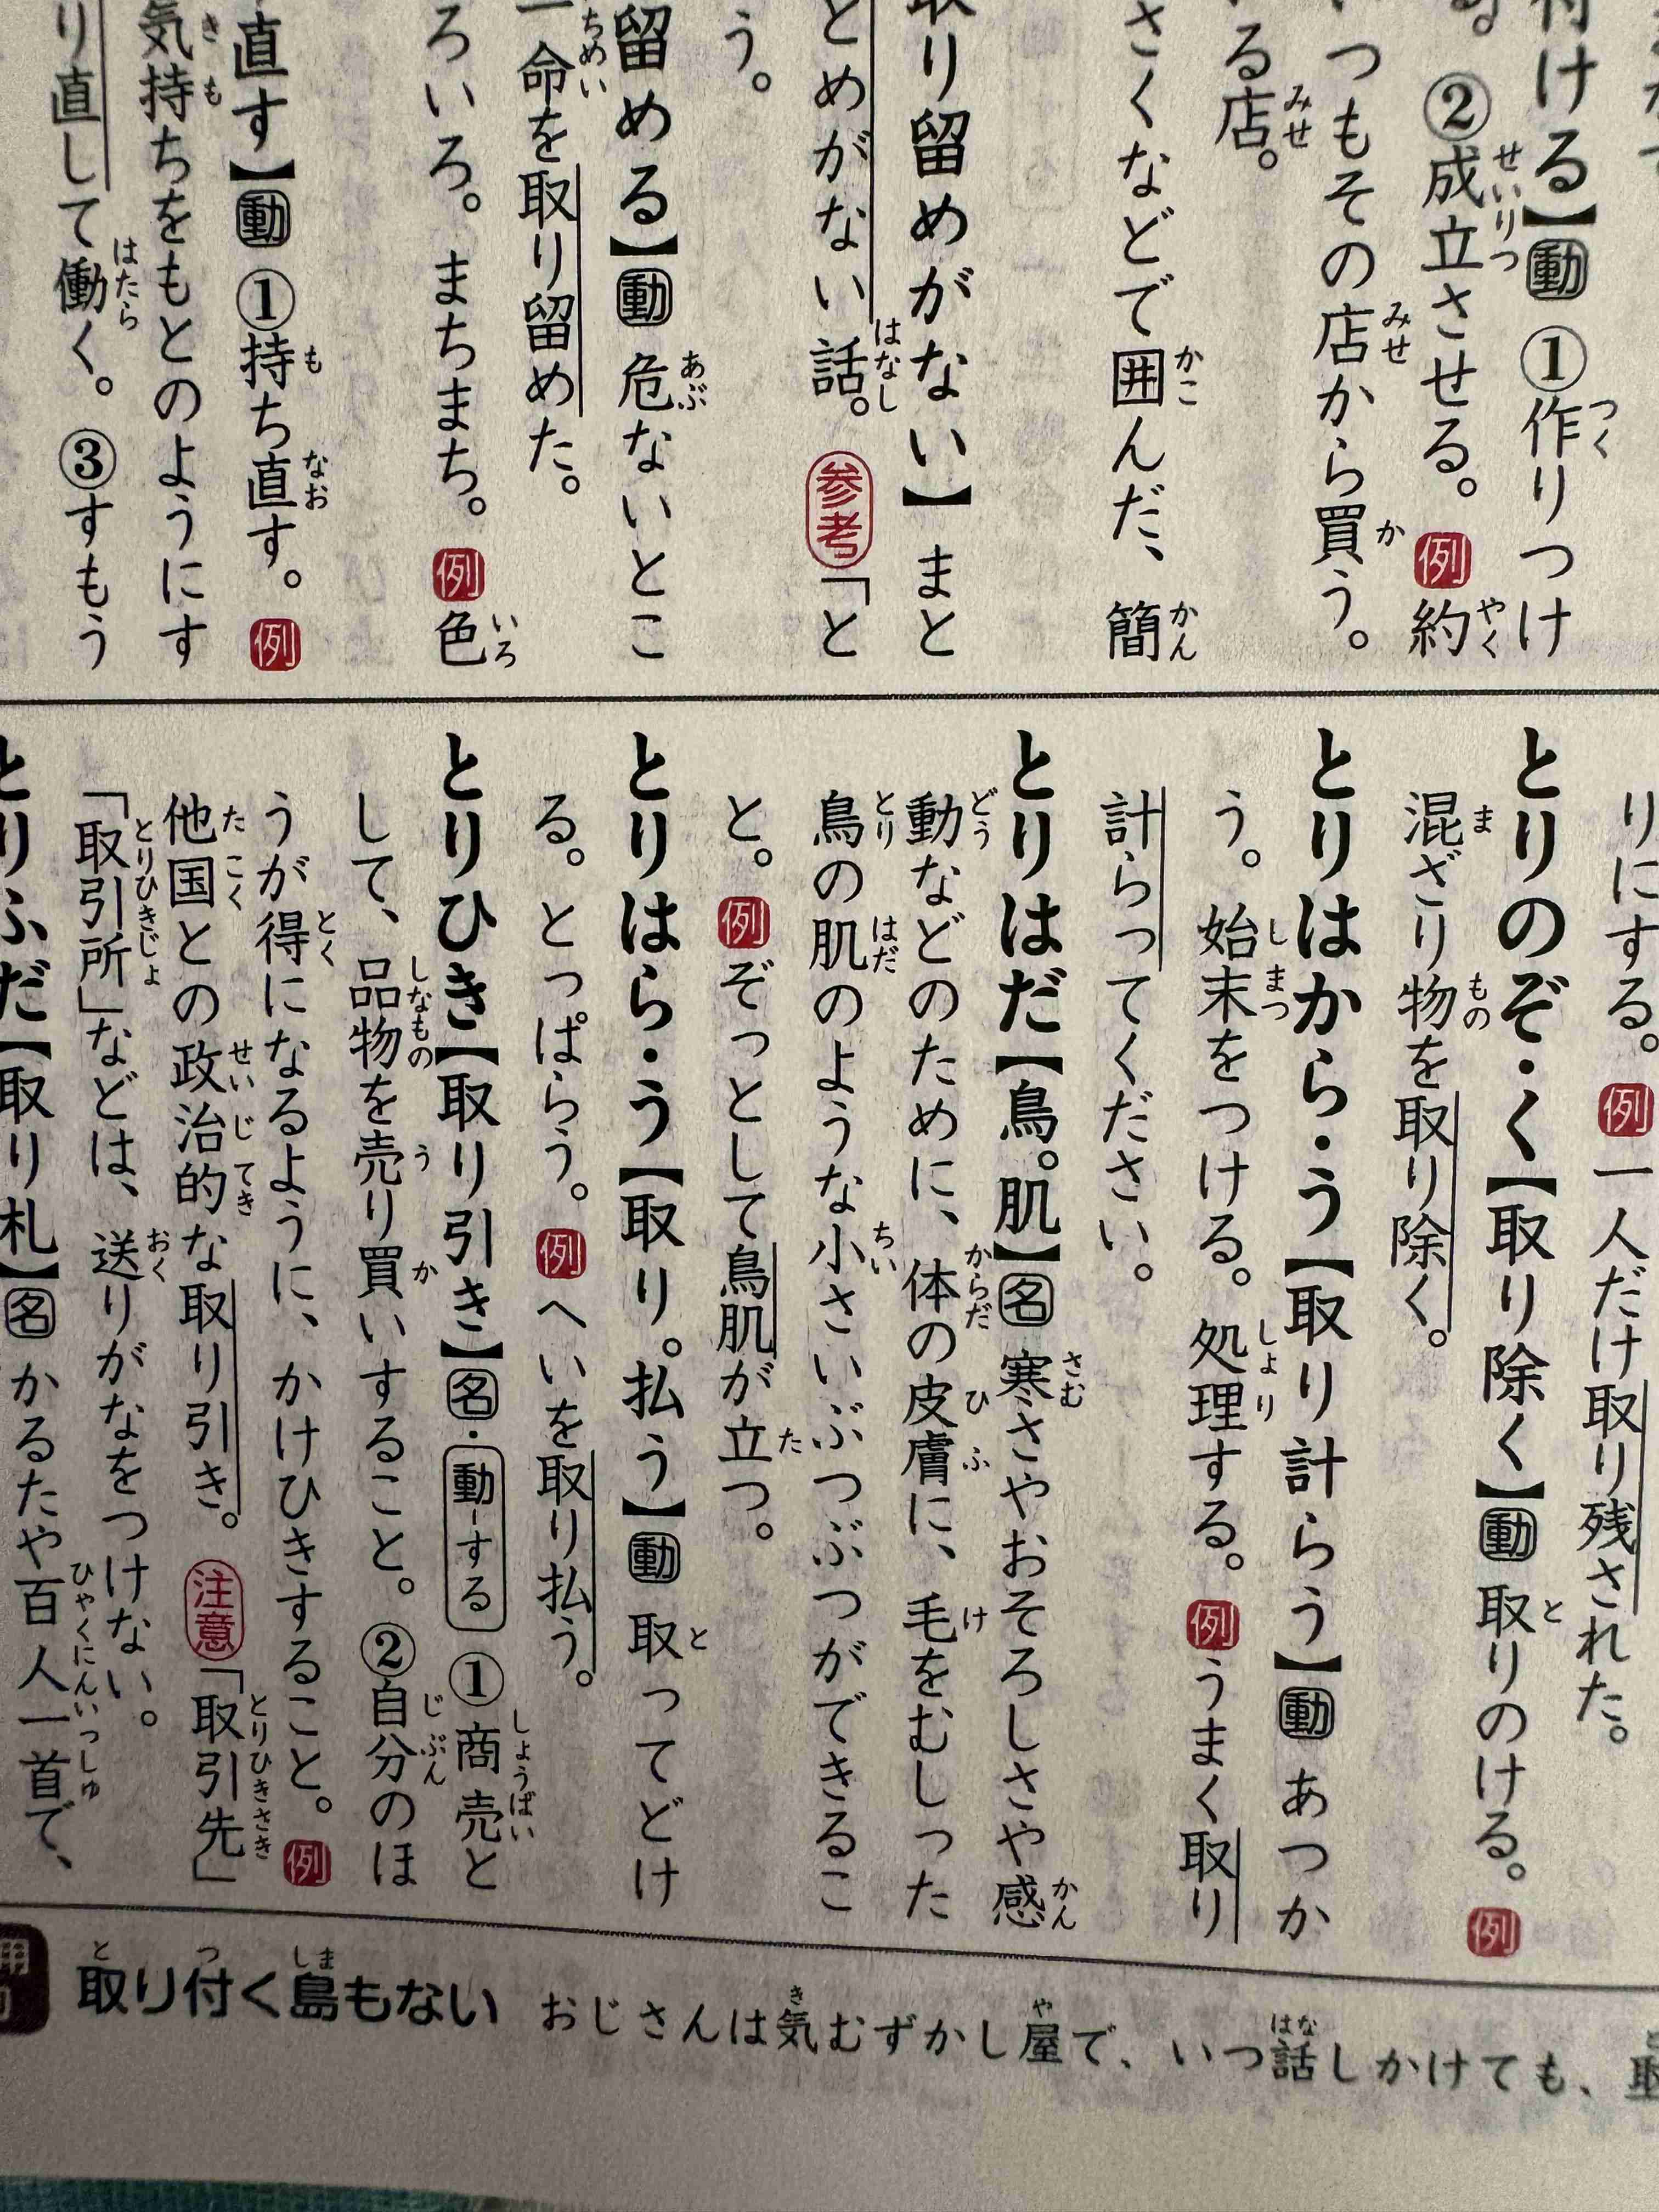 付ける】動 ①作りつけ
。②成立させる。例 約
つもその店から買う。
る店。
さくなどで囲んだ、簡
取り留めがない】まと
とめがない話。参考「と
う。
留める】動 危ないとこ
一命を取り留めた。
ろいろ。まちまち。例 色
直す】動 ①持ち直す。例
気持ちをもとのようにす
り直して働く。③すもう
りにする。例 一人だけ取り残された。
とりのぞ・く【取り除く】動 取りのける。例
混ざり物を取り除く。
とりはから・う【取り計らう】動 あつか
う。始末をつける。処理する。例 うまく取り
計らってください。
とりはだ【鳥。肌】名 寒さやおそろしさや感
動などのために、体の皮膚に、毛をむしった
鳥の肌のような小さいぶつぶつができるこ
と。例 ぞっとして鳥肌が立つ。
とりはら・う【取り。払う】動 取ってどけ
る。とっぱらう。例 へいを取り払う。
とりひき【取り引き】名・動-する ①商売と
して、品物を売り買いすること。②自分のほ
うが得になるように、かけひきすること。例
他国との政治的な取り引き。注意「取引先」
「取引所」などは、送りがなをつけない。
とりふだ【取り札】名 かるたや百人一首で、
取り付く島もない おじさんは気むずかし屋で、いつ話しかけても、取